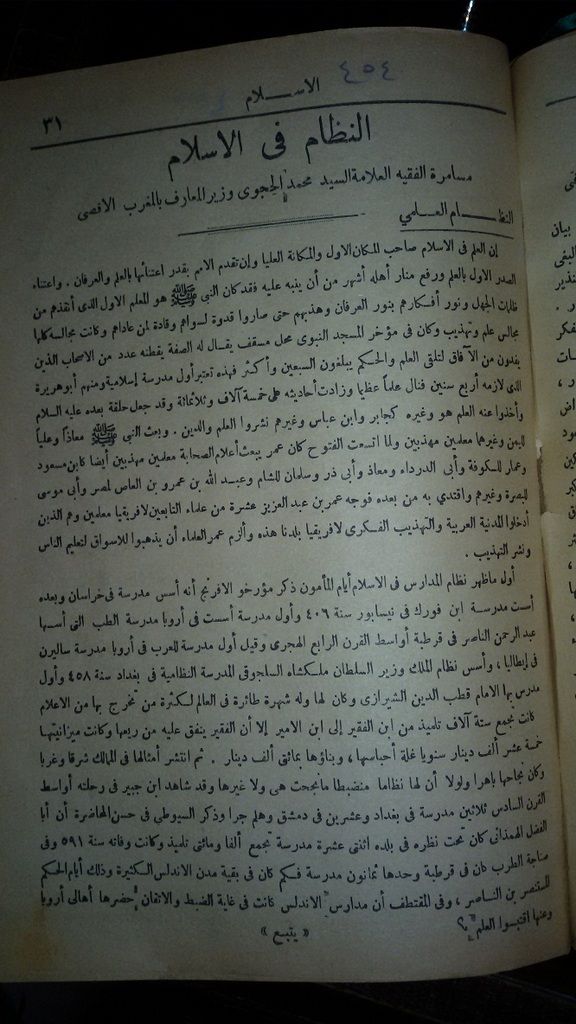 ٤٥٤
الاســـلام
٣١
النظام فى الاسلام
مسامرة الفقيه العلامة السيد محمد الحجوى وزير المعارف بالمغرب الاقصى
النظـــام العـــلمي
إن العلم فى الاسلام صاحب المكان الاول والمكانة العليا وإن تقدم الامم بقدر اعتنائها بالعلم والعرفان . واعتناء
الصدر الاول بالعلم ورفع منار أهله أشهر من أن ينبه عليه فقد كان النبي ﷺ هو المعلم الاول الذى أنقذهم من
ظلمات الجهل ونور أفكارهم بنور العرفان وهذبهم حتى صاروا قدوة لسواهم وقادة لمن عاداهم وكانت مجالسه كلها
مجالس علم وتهذيب وكان فى مؤخر المسجد النبوى محل مسقف يقال له الصفة يقطنه عدد من الاصحاب الذين
يفدون من الآفاق لتلقى العلم والحكم يبلغون السبعين وأكثر فهذه تعتبر أول مدرسة إسلامية ومنهم أبو هريرة
الذى لازمه أربع سنين فنال علماً عظيما وزادت أحاديثه على خمسة آلاف وثلاثمائة وقد جعل حلقة بعده عليه السلام
وأخذوا عنه العلم هو وغيره كجابر وابن عباس وغيرهم نشروا العلم والدين . وبعث النبى ﷺ معاذاً وعلياً
لليمن وغيرهما معلمين مهذبين ولما اتسعت الفتوح كان عمر يبعث أعلام الصحابة معلمين مهذبين أيضا كابن مسعود
وعمار للكوفة وأبى الدرداء ومعاذ وأبى ذر وسلمان للشام وعبد الله بن عمرو بن العاص لمصر وأبى موسى
للبصرة وغيرهم واقتدي به من بعده فوجه عمر بن عبد العزيز عشرة من علماء التابعين لافريقيا معلمين وهم الذين
أدخلوا المدنية العربية والتهذيب الفكرى لافريقيا بلدنا هذه وألزم عمر العلماء أن يذهبوا للاسواق لتعليم الناس
ونشر التهذيب .
أول ماظهر نظام المدارس فى الاسلام أيام المأمون ذكر مؤرخو الافرنج أنه أسس مدرسة فى خراسان وبعده
أسست مدرسة ابن فورك فى نيسابور سنة ٤٠٦ وأول مدرسة أسست فى أروبا مدرسة الطب التى أسسها
عبد الرحمن الناصر فى قرطبة أواسط القرن الرابع الهجرى وقيل أول مدرسة للعرب فى أروبا مدرسة ساليرن
فى إيطاليا ، وأسس نظام الملك وزير السلطان ملكشاه السلجوقى المدرسة النظامية فى بغداد سنة ٤٥٨ وأول
مدرس بها الامام قطب الدين الشيرازى وكان لها وله شهرة طائرة فى العالم لكثرة من تخرج بها من الاعلام
كانت تجمع ستة آلاف تلميذ من ابن الفقير إلى ابن الامير إلا أن الفقير ينفق عليه من ريعها وكانت ميزانيتها
خمسة عشر ألف دينار سنويا غلة أحباسها ، وبناؤها بمائتى ألف دينار . ثم انتشر أمثالها فى الممالك شرقا وغربا
وكان نجاحها باهرا ولولا أن لها نظاما منضبطا مانجحت هى ولا غيرها وقد شاهد ابن جبير فى رحلته أواسط
القرن السادس ثلاثين مدرسة فى بغداد وعشرين فى دمشق وهلم جرا وذكر السيوطى فى حسن المحاضرة أن أبا
الفضل الهمذانى كان تحت نظره فى بلده اثنتى عشرة مدرسة تجمع ألفا ومائتى تلميذ وكانت وفاته سنة ٥٩١ وفى
صناجة الطرب كان فى قرطبة وحدها ثمانون مدرسة فكم كان فى بقية مدن الاندلس الكثيرة وذلك أيام الحكم
المستنصر بن الناصر ، وفى المقتطف أن مدارس الاندلس كانت فى غاية الضبط والاتقان حضرها أهالى أروبا
وعنها اقتبسوا العلم ؟
« يتبع »